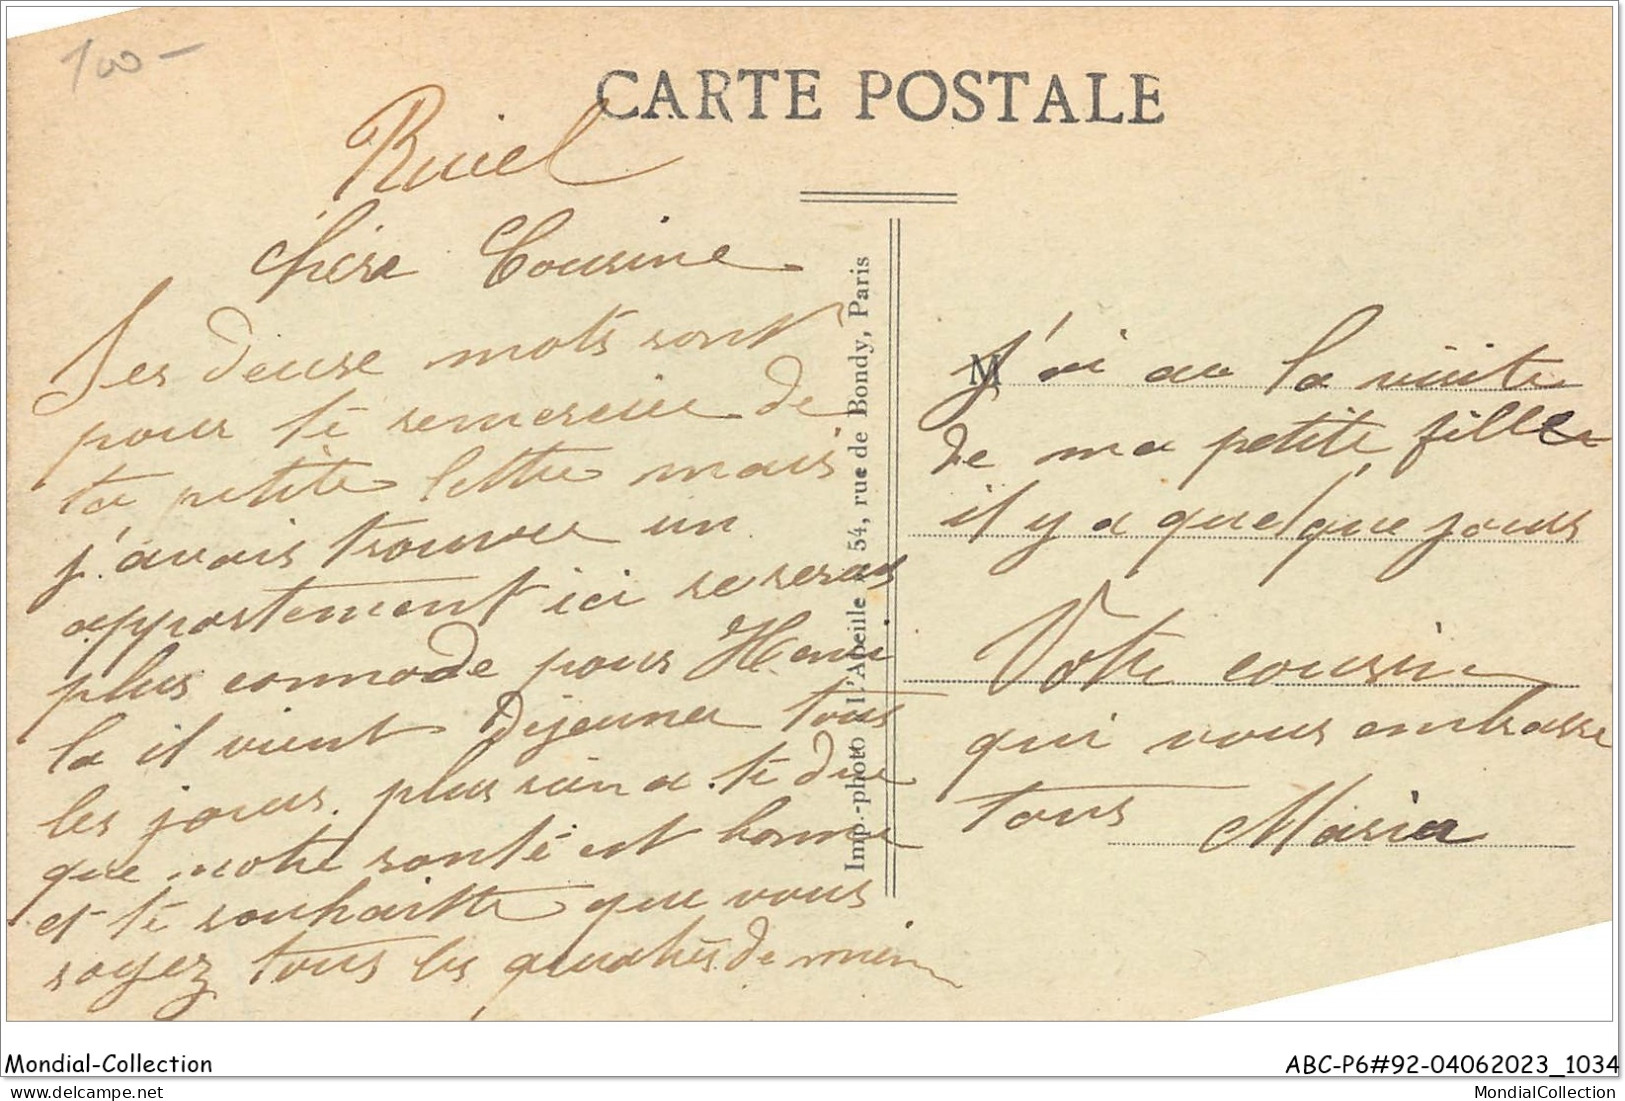 100-
CARTE POSTALE
Rueil
chère Cousine
Ses deuse mots sont
pour te remercier de
ta petite lettre mais
j'avais trouver un
appartement ici se seras
plus commode pour Henri
la il vient dejeuner tous
les jours. plus rien a te dire
que notre santé est bonne
et te souhaitte que vous
soyez tous les quatres de mien
Imp.-photo l'Abeille 54, rue de Bondy, Paris
M
J'ai au la visite
de ma petite fille
il y a quelque jours
Votre cousine
qui vous embrasse
tous Maria
Mondial-Collection
ABC-P6#92-04062023_1034
delcampe.net
MondialCollection